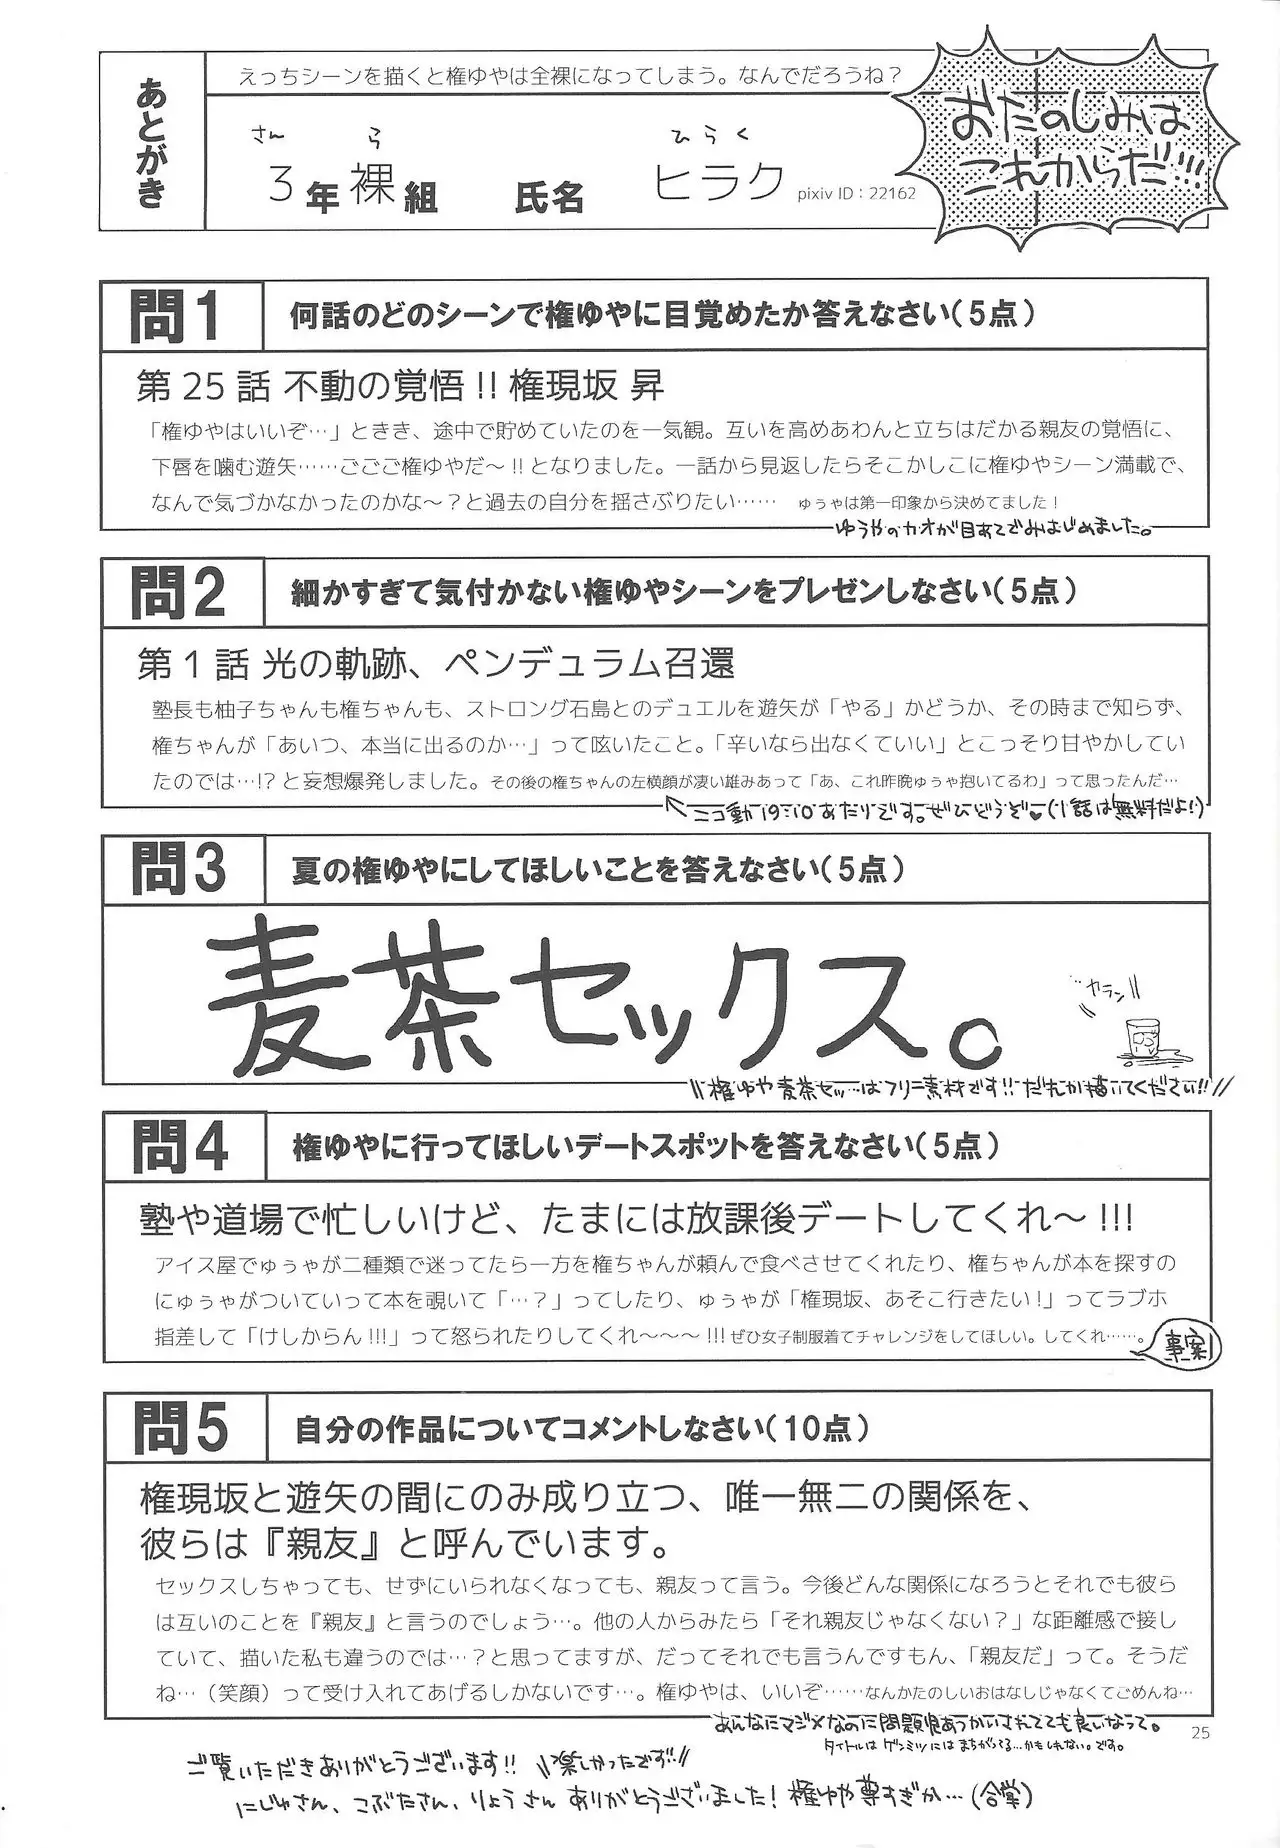 あとがき
えっちシーンを描くと権ゆやは全裸になってしまう。なんでだろうね？
さん ら ひらく
3年裸組 氏名 ヒラク pixiv ID：22162
おたのしみは
これからだ!!!
問1 何話のどのシーンで権ゆやに目覚めたか答えなさい（5点）
第25話 不動の覚悟!! 権現坂 昇
「権ゆやはいいぞ…」ときき、途中で貯めていたのを一気観。互いを高めあわんと立ちはだかる親友の覚悟に、
下唇を噛む遊矢……ごごご権ゆやだ～!!となりました。一話から見返したらそこかしこに権ゆやシーン満載で、
なんで気づかなかったのかな～？と過去の自分を揺さぶりたい…… ゅぅゃは第一印象から決めてました！
ゆうやのカオが目あてでみはじめました。
問2 細かすぎて気付かない権ゆやシーンをプレゼンしなさい（5点）
第1話 光の軌跡、ペンデュラム召還
塾長も柚子ちゃんも権ちゃんも、ストロング石島とのデュエルを遊矢が「やる」かどうか、その時まで知らず、
権ちゃんが「あいつ、本当に出るのか…」って呟いたこと。「辛いなら出なくていい」とこっそり甘やかしてい
たのでは…!?と妄想爆発しました。その後の権ちゃんの左横顔が凄い雄みあって「あ、これ昨晩ゅぅゃ抱いてるわ」って思ったんだ…
ニコ動19:10あたりです。ぜひどうぞー♥(1話は無料だよ!)
問3 夏の権ゆやにしてほしいことを答えなさい（5点）
麦茶セックス。
カラン
\\権ゆや麦茶セッ…はフリー素材です!!だれか描いてください!!//
問4 権ゆやに行ってほしいデートスポットを答えなさい（5点）
塾や道場で忙しいけど、たまには放課後デートしてくれ～!!!
アイス屋でゅぅゃが二種類で迷ってたら一方を権ちゃんが頼んで食べさせてくれたり、権ちゃんが本を探すの
にゅぅゃがついていって本を覗いて「…？」ってしたり、ゅぅゃが「権現坂、あそこ行きたい！」ってラブホ
指差して「けしからん!!!」って怒られたりしてくれ～～～!!!ぜひ女子制服着てチャレンジをしてほしい。してくれ……。
事案
問5 自分の作品についてコメントしなさい（10点）
権現坂と遊矢の間にのみ成り立つ、唯一無二の関係を、
彼らは『親友』と呼んでいます。
セックスしちゃっても、せずにいられなくなっても、親友って言う。今後どんな関係になろうとそれでも彼ら
は互いのことを『親友』と言うのでしょう…。他の人からみたら「それ親友じゃなくない？」な距離感で接し
ていて、描いた私も違うのでは…？と思ってますが、だってそれでも言うんですもん、「親友だ」って。そうだ
ね…（笑顔）って受け入れてあげるしかないです…。権ゆやは、いいぞ……なんかたのしいおはなしじゃなくてごめんね…
あんなにマジメなのに問題児あつかいされてても良いなって。
タイトルはゲンミツにはまちがってる…かもしれない。です。
25
ご覧いただきありがとうございます!! \\楽しかったです//
にじゅさん、こぶたさん、りょうさんありがとうございました！権ゆや尊すぎか…(合掌)